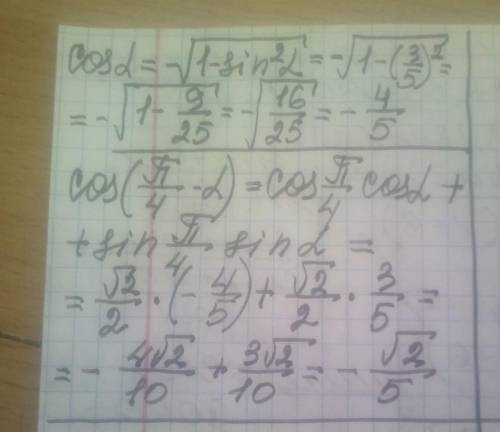 cosα = -√(1-sin²α) = -√(1-(3/5)²) =
= -√(1- 9/25) = -√(16/25) = - 4/5
cos(π/4 -α) = cos π/4 cosα +
+ sin π/4 sinα =
= √2/2 · (- 4/5) + √2/2 · 3/5 =
= - 4√2/10 + 3√2/10 = - √2/5